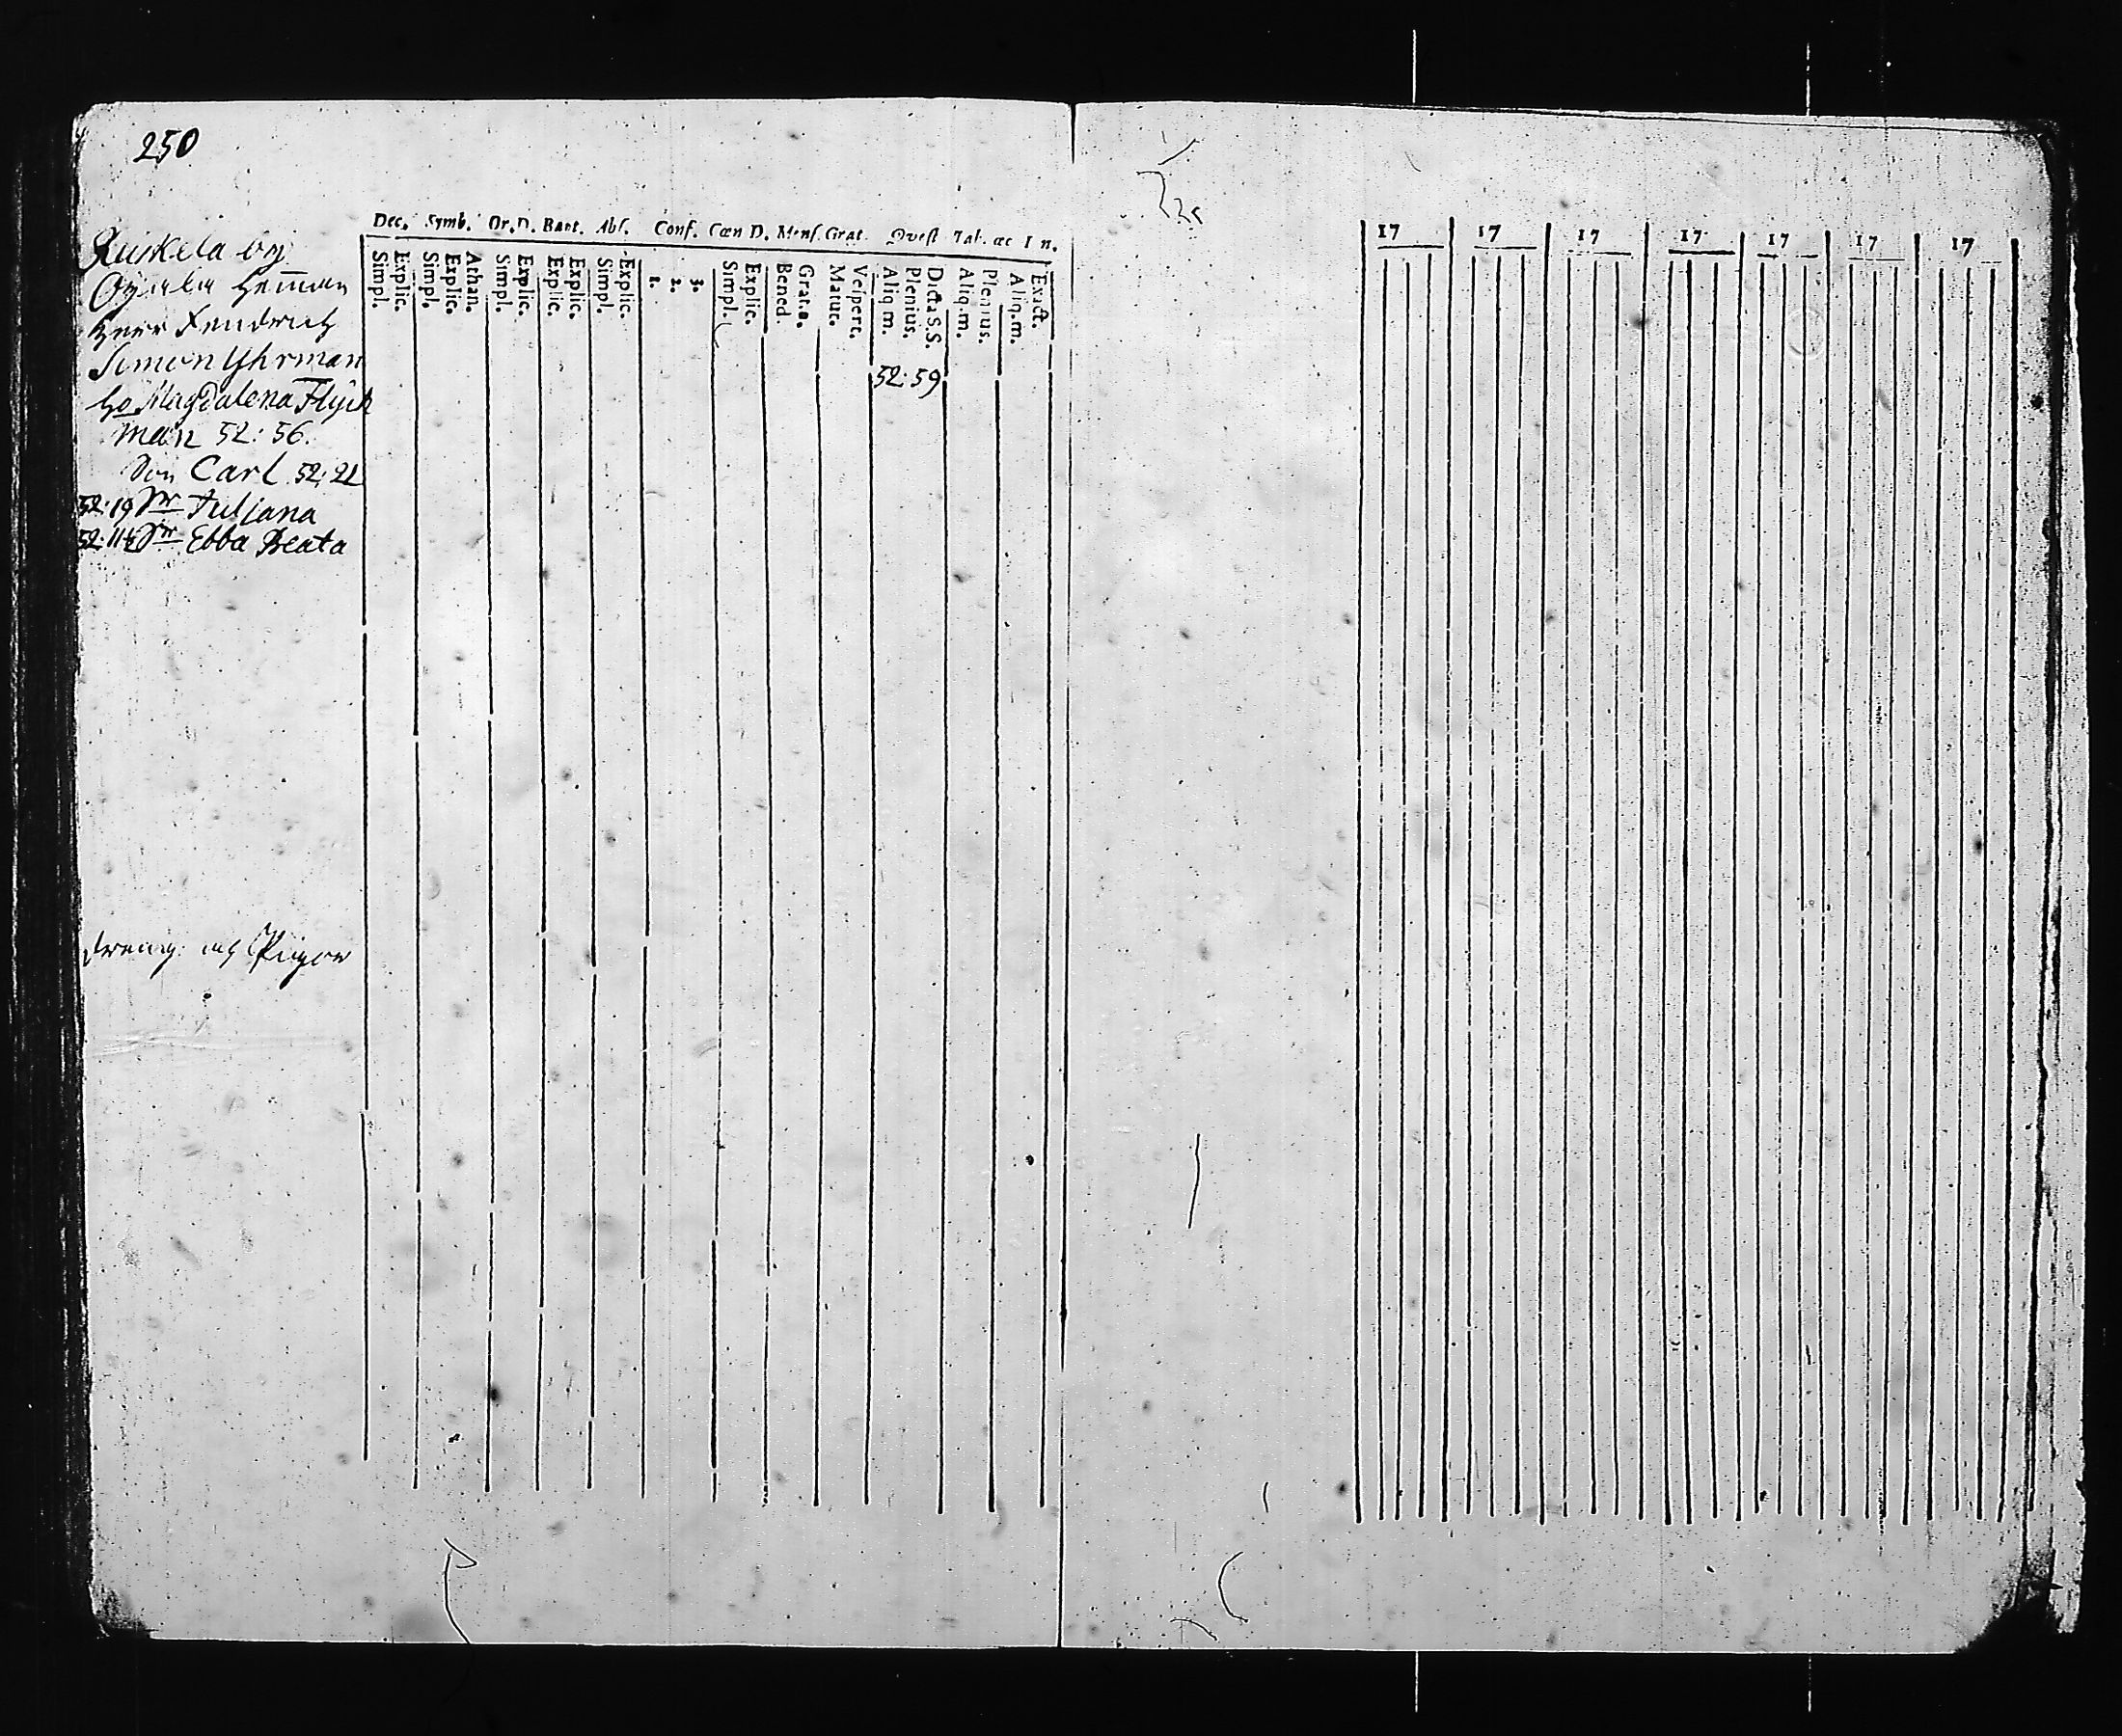 250
Dec. Symb. Or. D. Bapt. Abs. Conf. Cœn D. Mens. Grat. Qvest Tab. œc I n.
Simpl. Explic. Simpl. Explic. Athan. Simpl. Explic. Explic. Explic. Simpl. Explic. 1. 2. 3. Simpl. Explic. Bened. Grat.a. Matut. Vespert. Aliq.m. Plenius. Dicta S.S. Aliq.m. Plenius. Aliq.m. Exact.
17 17 17 17 17 17 17
by
Heman
Herr Fendrich
Simon Yhrman
52:59
ho Magdalena Flyck
man 52:56.
Son Carl 52:21
52:19 Dr Juliana
52:11 Dr Ebba Beata
dreng och Pigor